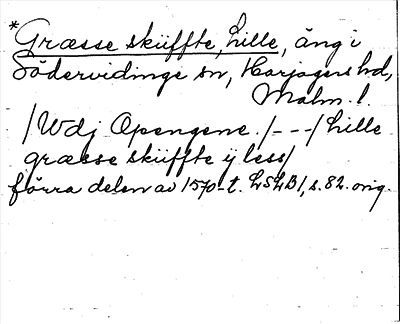 *Græsse skiiffte, Lille, äng i
Södervidinge sn, Harjagers hd,
Malm. l.
/Wdj Opengene./---/Lille
græsse skiiffte ÿ less/
förra delen av 1570-t. LSLB1, s. 82. orig.